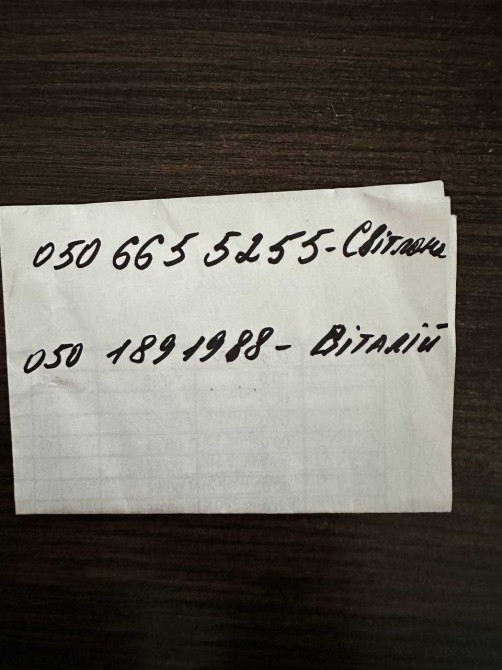 050 665 5255 - Світлана
050 189 1988 - Віталій